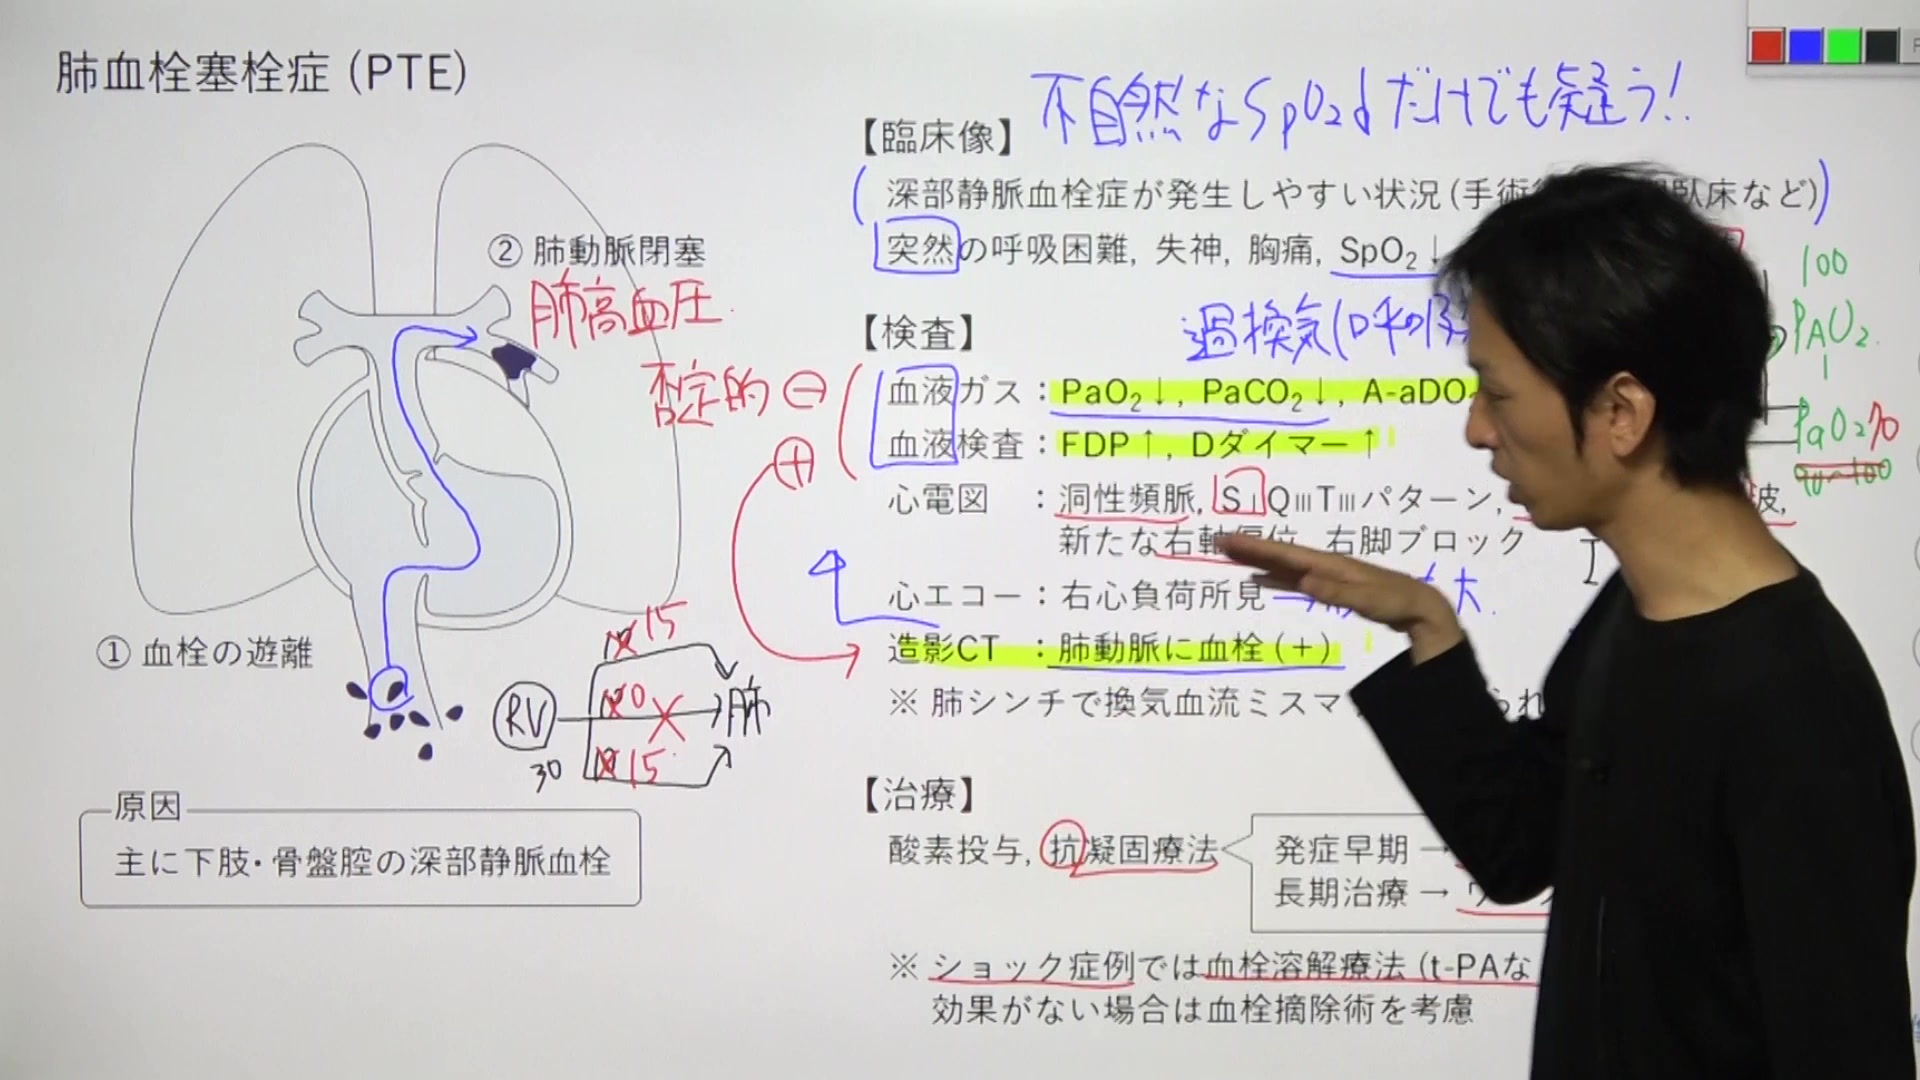 肺血栓塞栓症 (PTE)
② 肺動脈閉塞
肺高血圧
① 血栓の遊離
RV
30
15
0
15
肺
原因
主に下肢・骨盤腔の深部静脈血栓
不自然なSpO₂↓だけでも疑う!!
【臨床像】
深部静脈血栓症が発生しやすい状況 (手術 臥床など)
突然の呼吸困難, 失神, 胸痛, SpO₂↓
【検査】
過換気(呼吸
否定的 ⊖
⊕
血液ガス : PaO₂↓, PaCO₂↓, A-aDO
血液検査 : FDP↑, Dダイマー↑
心電図 : 洞性頻脈, SⅠQⅢTⅢパターン, 波,
新たな右軸偏位, 右脚ブロック
心エコー : 右心負荷所見 大
造影CT : 肺動脈に血栓 (+)
※ 肺シンチで換気血流ミスマ られ
100
PAO₂
PaO₂ 70
90〜100
【治療】
酸素投与, 抗凝固療法
発症早期 →
長期治療 → ワ
※ ショック症例では血栓溶解療法 (t-PAな
効果がない場合は血栓摘除術を考慮